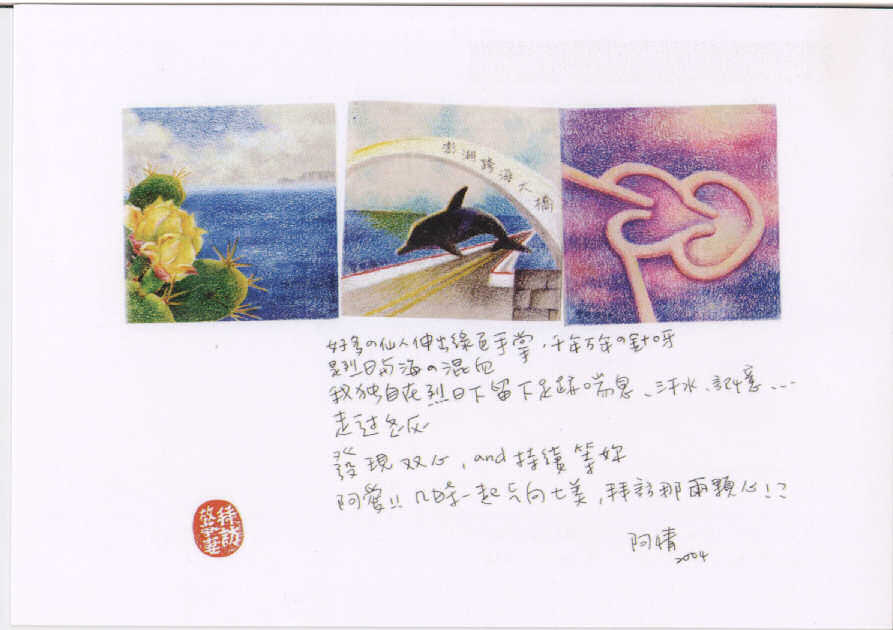 澎湖跨海大橋
好多の仙人伸出綠色手掌，千年万年の針呀
是烈日与海の混血
我独自在烈日下留下足跡喘息、汗水、記憶…
走过
發現双心，and持續等妳
阿愛!! 一起去向七美，拜訪那兩顆心!?
阿情
2004